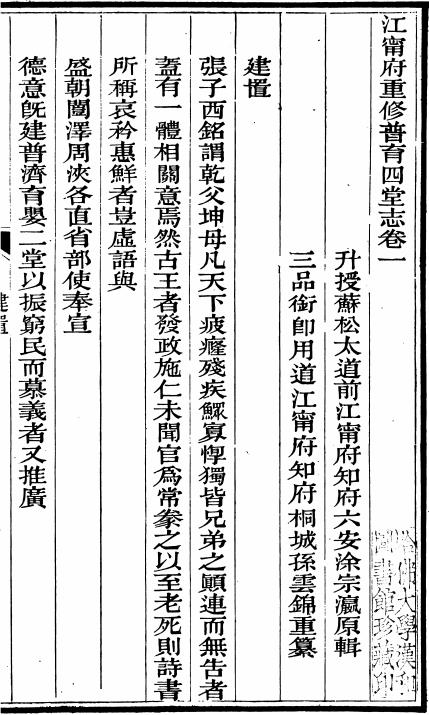 江甯府重修普育四堂志卷一
升授蘇松太道前江甯府知府六安涂宗瀛原輯
三品銜卽用道江甯府知府桐城孫雲錦重纂
建置
張子西銘謂乾父坤母凡天下疲癃殘疾鰥寡惸獨皆兄弟之顚連而無告者
葢有一體相關意焉然古王者發政施仁未聞官爲常豢之以至老死則詩書
所稱哀矜惠鮮者豈虛語與
盛朝闓澤周浹各直省部使奉宣
德意旣建普濟育嬰二堂以振窮民而慕義者又推廣
建置
哈佛大學漢和
圖書館珍藏印